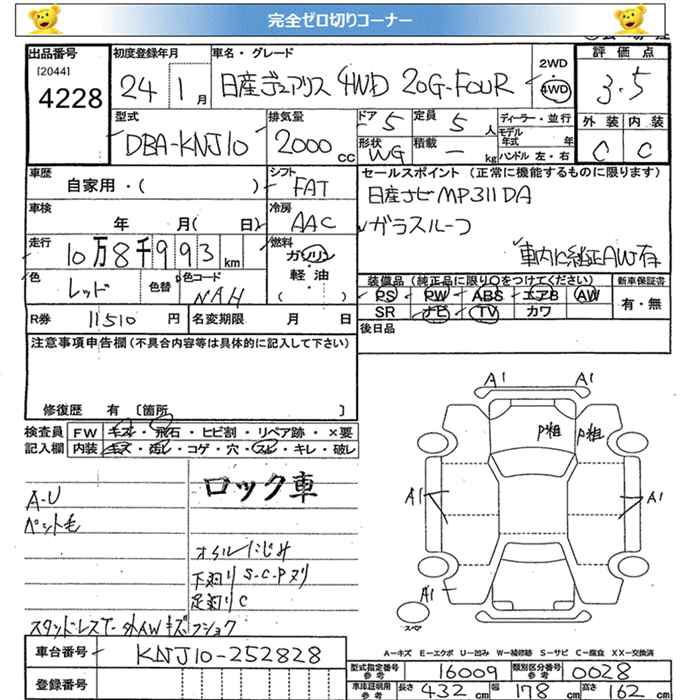 完全ゼロ切りコーナー
出品番号
[2044]
4228
初度登録年月
24 1月
車名・グレード
日産デュアリス 4WD 20G-FOUR
2WD
4WD
評価点
3.5
外装 内装
C C
型式
DBA-KNJ10
排気量
2000cc
ドア 5
定員 5人
形状 WG
積載 ー kg
ディーラー・並行
モデル年式 年
ハンドル 左・右
車歴
自家用・( )
シフト
FAT
セールスポイント (正常に機能するものに限ります)
日産ナビMP311DA
ガラスルーフ
車内に純正AW有
車検
年 月( 日)
冷房
AAC
走行
10万8千993km
燃料
ガソリン
軽・油
( )
色
レッド
色替
色コード
NAH
装備品(純正品に限り○をつけてください)
新車保証書
PS PW ABS エアB AW
有・無
SR ナビ TV カワ
R券 11510円
名変期限 月 日
後日品
注意事項申告欄(不具合内容等は具体的に記入して下さい)
修復歴 有 〔箇所 〕
検査員記入欄
FW キズ・飛石・ヒビ割・リペア跡・×要
内装 キズ・汚レ・コゲ・穴・スレ・キレ・破レ
ロック車
A-U
ペット毛
オイルにじみ
下廻り S-C-Pヌリ
足廻り C
スタッドレスT 外AWキズ フショク
A1 A1
P粗 P粗
A1 A1
A1
スペア
A-キズ E-エクボ U-凹み W-補修跡 S-サビ C-腐食 XX-交換済
車台番号
KNJ10-252828
登録番号
型式指定番号 参考 16009
類別区分番号 参考 0028
車庫証明用 参考 長さ 432cm 幅 178cm 高さ 162cm